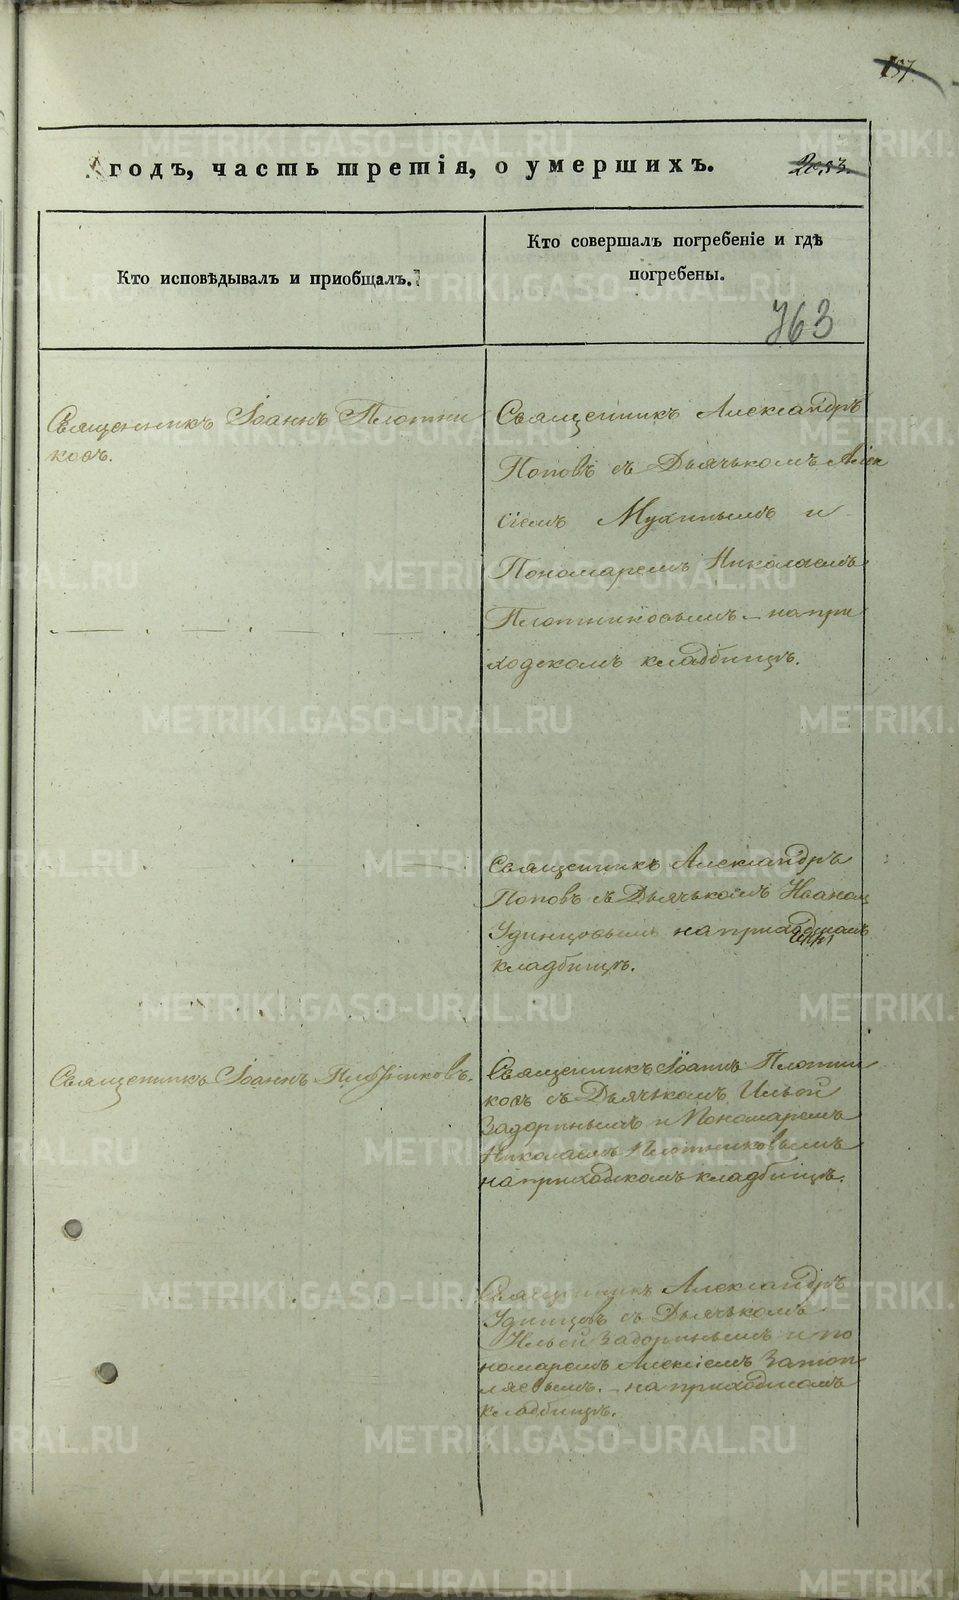 годъ, часть третія, о умершихъ.
Кто исповѣдывалъ и приобщалъ.
Кто совершалъ погребеніе и гдѣ
погребены.
763
Священникъ Іоаннъ Плотни
ковъ.
Священникъ Александръ
Поповъ съ Дьячькомъ Алек
сіемъ Мухинымъ и
Пономаремъ Николаемъ
Плотниковымъ - на при
ходскомъ кладбищѣ.
Священникъ Александръ
Поповъ съ Дьячькомъ Иваном
Удинцовымъ на приходскомъ
кладбищѣ.
Священникъ Іоаннъ Плотниковъ.
Священникъ Іоаннъ Плотни
ковъ съ Дьячькомъ Ильей
Задоринымъ и Пономаремъ
Николаемъ Плотниковымъ
на приходскомъ кладбищѣ.
Священникъ Александръ
Удинцовъ съ Дьячькомъ
Ильей Задоринымъ и по
номаремъ Алексіемъ Затоп
ляевымъ. - на приходскомъ
кладбищѣ.
METRIKI.GASO-URAL.RU